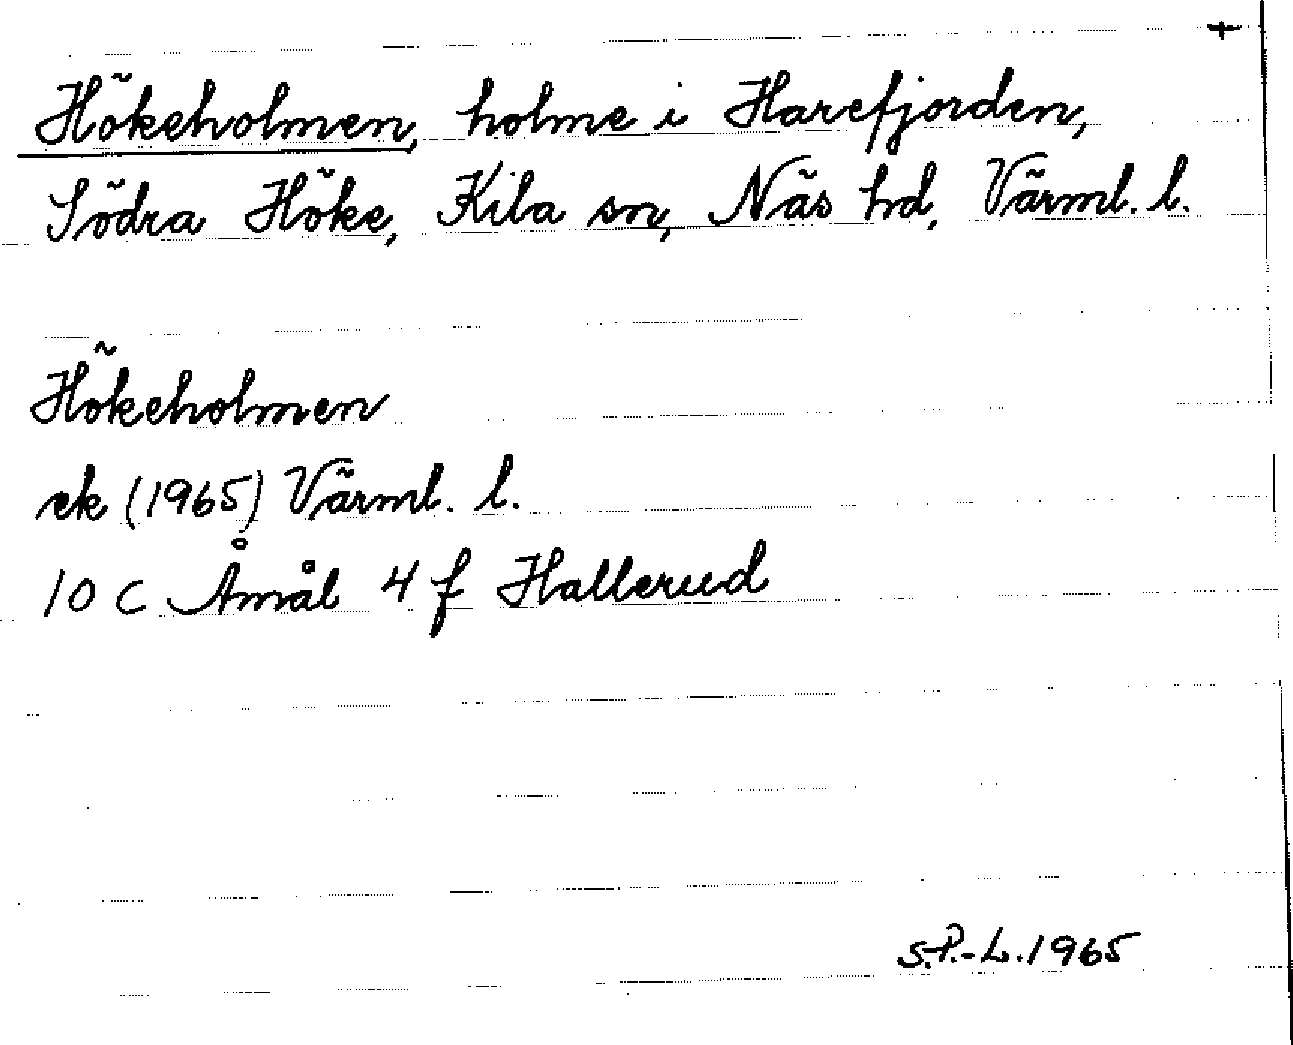 +
Hökeholmen, holme i Harefjorden,
Södra Höke, Kila sn, Näs hd, Värml. l.
Hökeholmen
ek (1965) Värml. l.
10 C Åmål 4 f Hallerud
S.P.-L. 1965